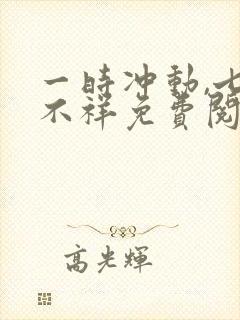 一時冲動,七
不祥免費閱
高光輝